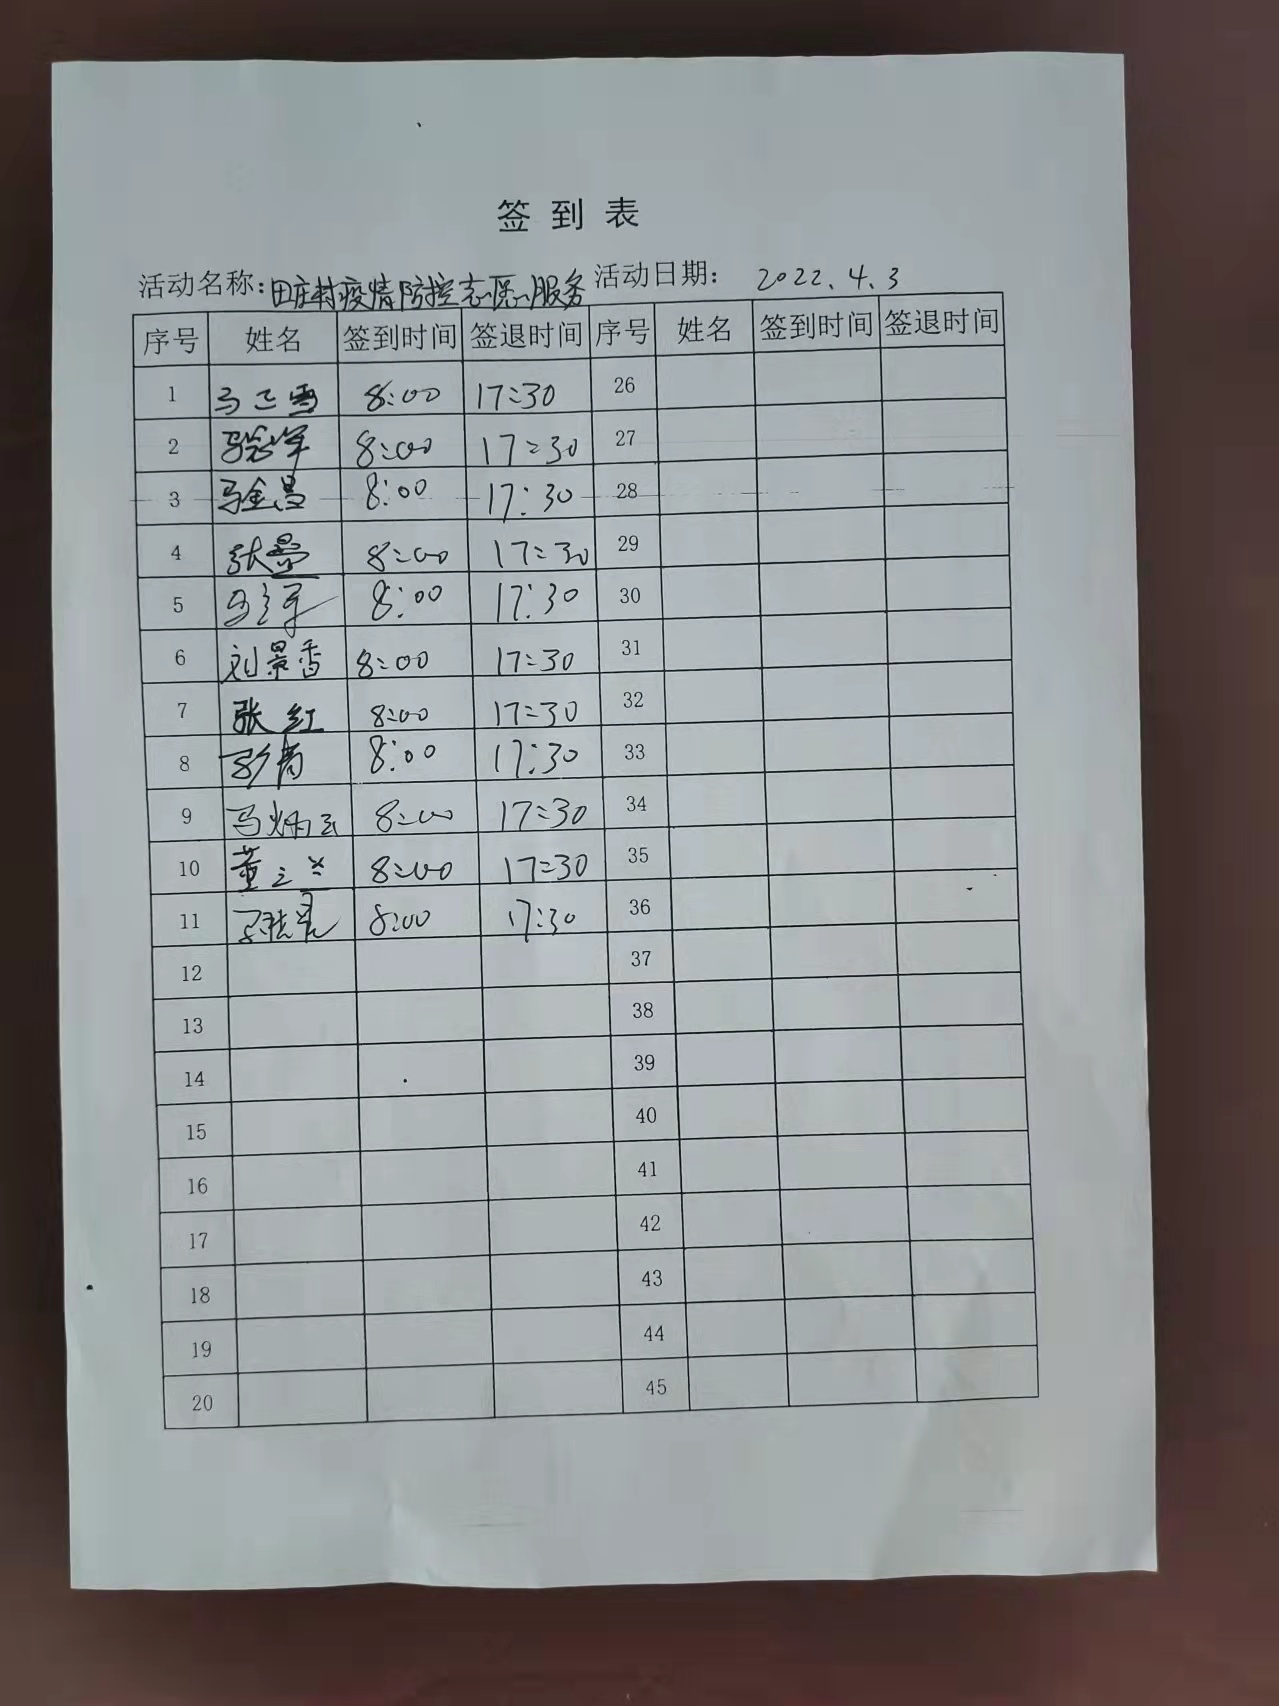 签到表
活动名称:田庄村疫情防控志愿服务 活动日期: 2022.4.3
序号 姓名 签到时间 签退时间 序号 姓名 签到时间 签退时间
1 8:00 17:30 26
2 8:00 17:30 27
3 马金昌 8:00 17:30 28
4 张景 8:00 17:30 29
5 8:00 17:30 30
6 刘景香 8:00 17:30 31
7 张红 8:00 17:30 32
8 8:00 17:30 33
9 马炳云 8:00 17:30 34
10 董之兰 8:00 17:30 35
11 8:00 17:30 36
12 37
13 38
14 39
15 40
16 41
17 42
18 43
19 44
20 45